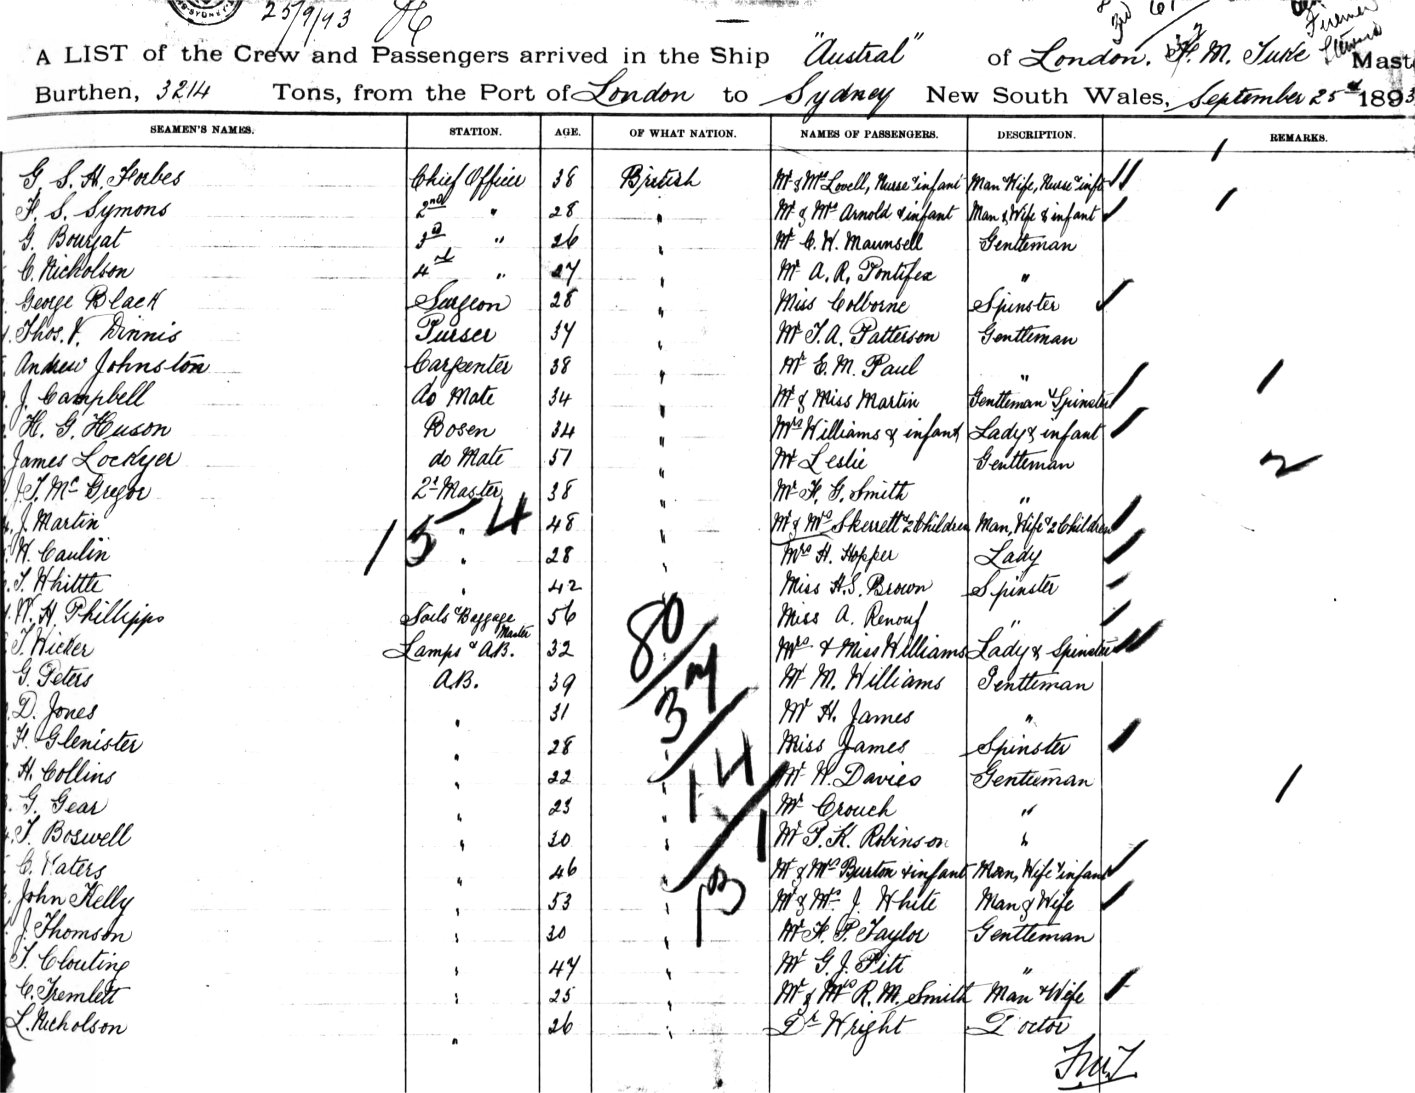 25/9/93
A LIST of the Crew and Passengers arrived in the Ship "Austral" of London, F. M. Tuke Mast
Burthen, 3214 Tons, from the Port of London to Sydney New South Wales, September 25th 1893
SEAMEN'S NAMES. STATION. AGE. OF WHAT NATION. NAMES OF PASSENGERS. DESCRIPTION. REMARKS.
G. S. H. Forbes Chief Officer 38 British Mr & Mrs Lovell, Nurse & infant Man & Wife, Nurse & inft
F. S. Symons 2nd " 28 " Mr & Mrs Arnold & infant Man & Wife & infant
G. Bourgat 3rd " 26 " Mr C. W. Maunsell Gentleman
C. Nicholson 4th " 27 " Mr A. R. Pontifex "
George Black Surgeon 28 " Miss Colborne Spinster
Thos. V. Dinnis Purser 37 " Mr T. A. Patterson Gentleman
Andrew Johnston Carpenter 38 " Mr E. M. Paul "
J. Campbell do Mate 34 " Mr & Miss Martin Gentleman & Spinster
H. G. Huson Bosen 34 " Mrs Williams & infant Lady & infant
James Lockyer do Mate 51 " Mr Leslie Gentleman 2
J. T. McGregor 2r Master 38 " Mr F. G. Smith "
J. Martin " 48 " Mr & Mrs Skerrett & 2 Children Man, Wife & 2 Children
154
W. Caulin " 28 " Mrs H. Hopper Lady
T. Whittle " 42 " Miss H. S. Brown Spinster
W. H. Phillipps Sails & Baggage Master 56 " Miss A. Renouf "
T. Wicker Lamps & A.B. 32 " Mrs & Miss Williams Lady & Spinster
80
G. Peters A.B. 39 " Mr M. Williams Gentleman
37
D. Jones " 31 " Mr H. James "
F. Glenister " 28 " Miss James Spinster
14
H. Collins " 22 " Mr W. Davies Gentleman
G. Gear " 23 " Mr Crouch "
T. Boswell " 30 " Mr T. K. Robinson "
C. Vaters " 46 " Mr & Mrs Burton & infant Man, Wife & infant
13
John Kelly " 53 " Mr & Mrs J. White Man & Wife
J. Thomson " 30 " Mr F. P. Taylor Gentleman
T. Clouting " 47 " Mr G. J. Pitt "
C. Tremlett " 25 " Mr & Mrs R. M. Smith Man & Wife
L. Nicholson " 26 " Dr Wright Doctor